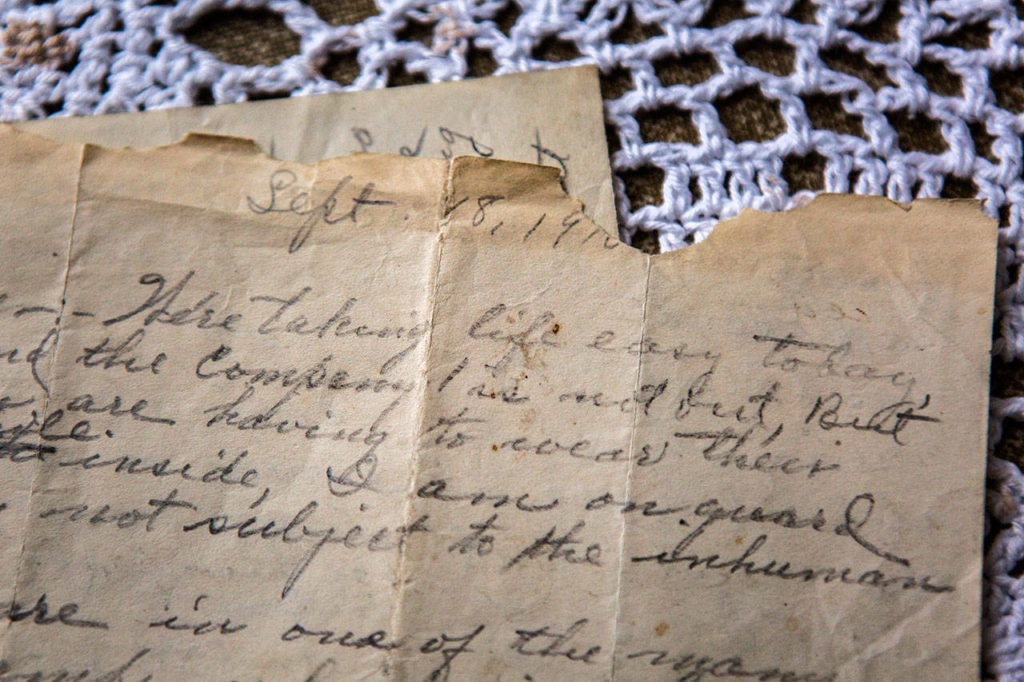 Sept. 18, 191
We're taking life easy today,
the company is not out, But
are having to wear their
inside, I am on guard
not subject to the inhuman
are in one of the many